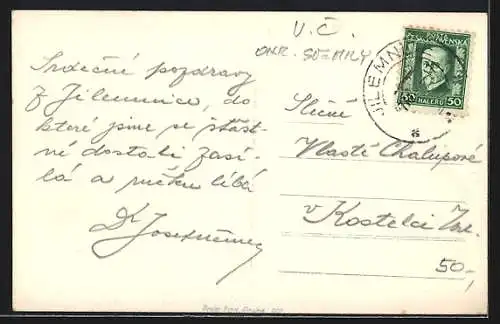 V.Č.
OKR. SEMILY
POŠTA
ČESKOSLOVENSKÁ
50 HALÉŘŮ 50
JILEMN
a
Srdečné pozdravy
z Jilemnice, do
které jsme se šťast-
ně dostali zasí-
lá a ručku líbá
Dr
Slečně
Vlastě Chalupové
v Kostelci
50,-